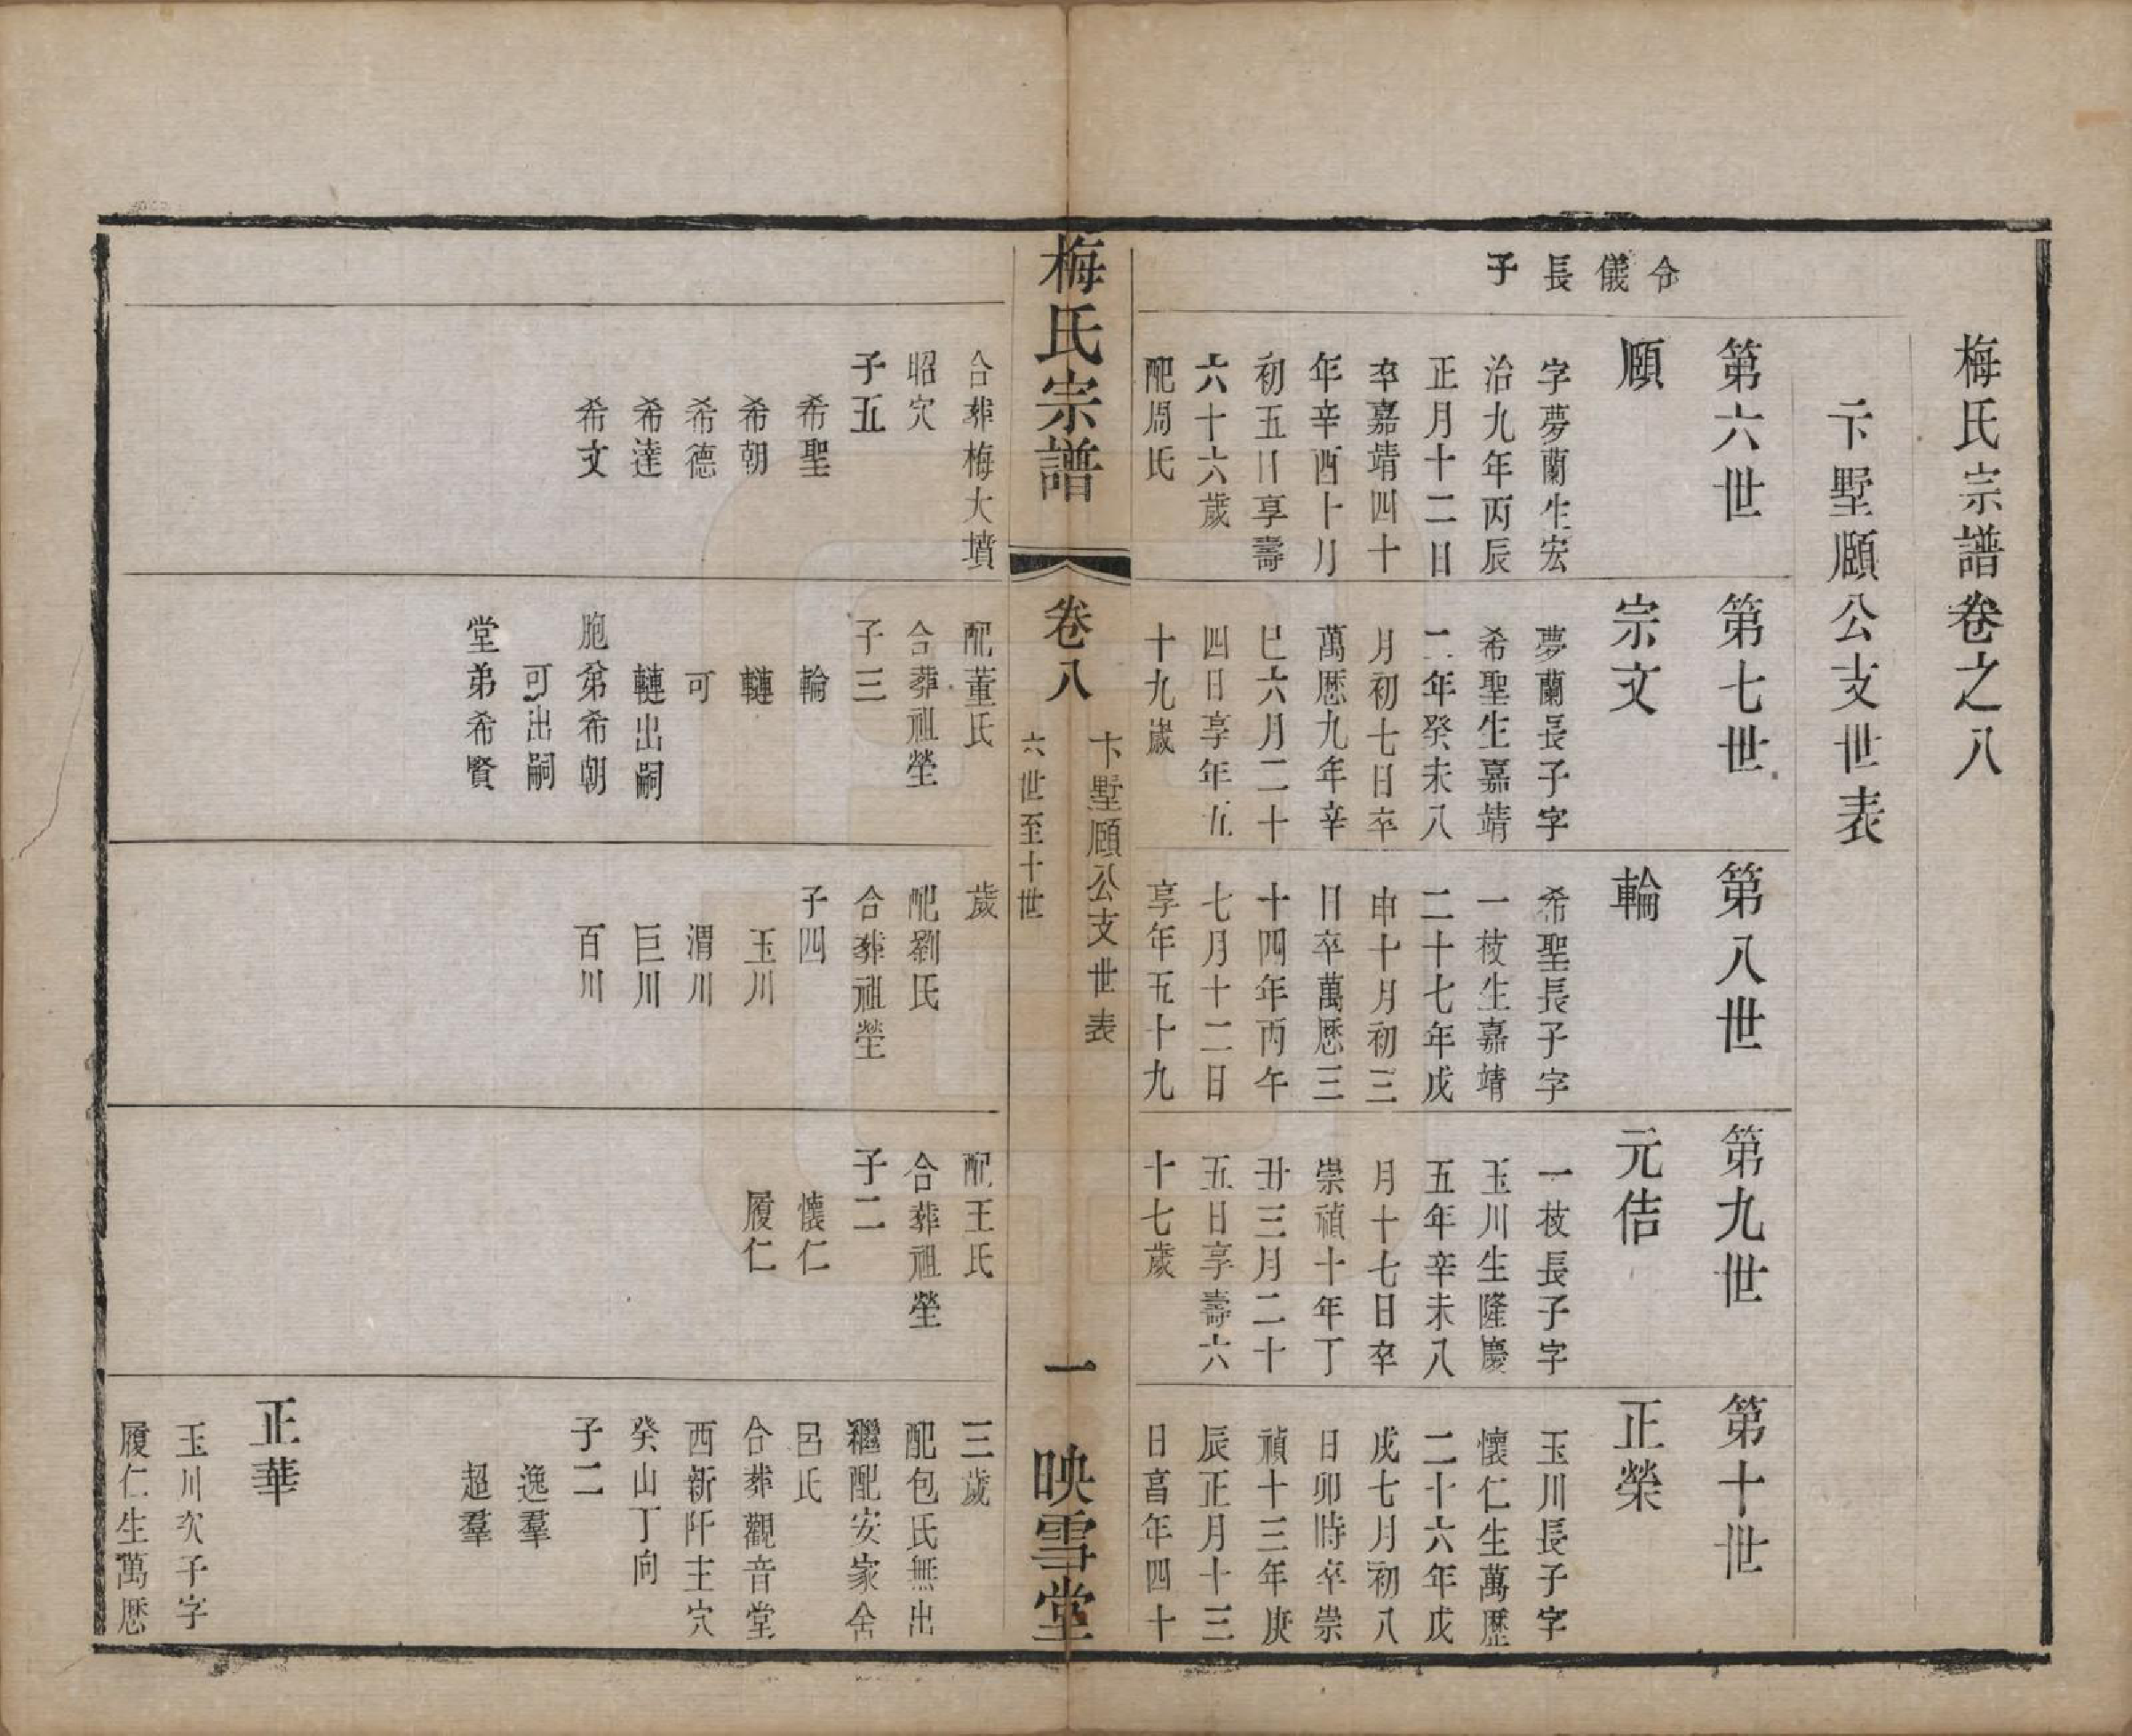 梅氏宗譜卷之八
卞墅願公支世表
令儀長子
第六世
願
字夢蘭生宏
治九年丙辰
正月十二日
卒嘉靖四十
年辛酉十月
初五日享壽
六十六歲
配周氏
第七世
宗文
夢蘭長子字
希聖生嘉靖
二年癸未八
月初七日卒
萬歷九年辛
巳六月二十
四日享年五
十九歲
第八世
輪
希聖長子字
一枝生嘉靖
二十七年戊
申十月初三
日卒萬歷三
十四年丙午
七月十二日
享年五十九
第九世
元佶
一枝長子字
玉川生隆慶
五年辛未八
月十七日卒
崇禎十年丁
丑三月二十
五日享壽六
十七歲
第十世
正榮
玉川長子字
懷仁生萬歷
二十六年戊
戌七月初八
日卯時卒崇
禎十三年庚
辰正月十三
日亯年四十
梅氏宗譜
卷八
卞墅願公支世表
六世至十世
一
映雪堂
合葬梅大墳
昭穴
子五
希聖
希朝
希德
希達
希文
配董氏
合葬祖塋
子三
輪
轋
可
轋出嗣
胞弟希朝
可出嗣
堂弟希賢
歲
配劉氏
合葬祖塋
子四
玉川
渭川
巨川
百川
配王氏
合葬祖塋
子二
懷仁
履仁
三歲
配包氏無出
繼配安家舍
呂氏
合葬觀音堂
西新阡主穴
癸山丁向
子二
逸羣
超羣
正華
玉川次子字
履仁生萬歷